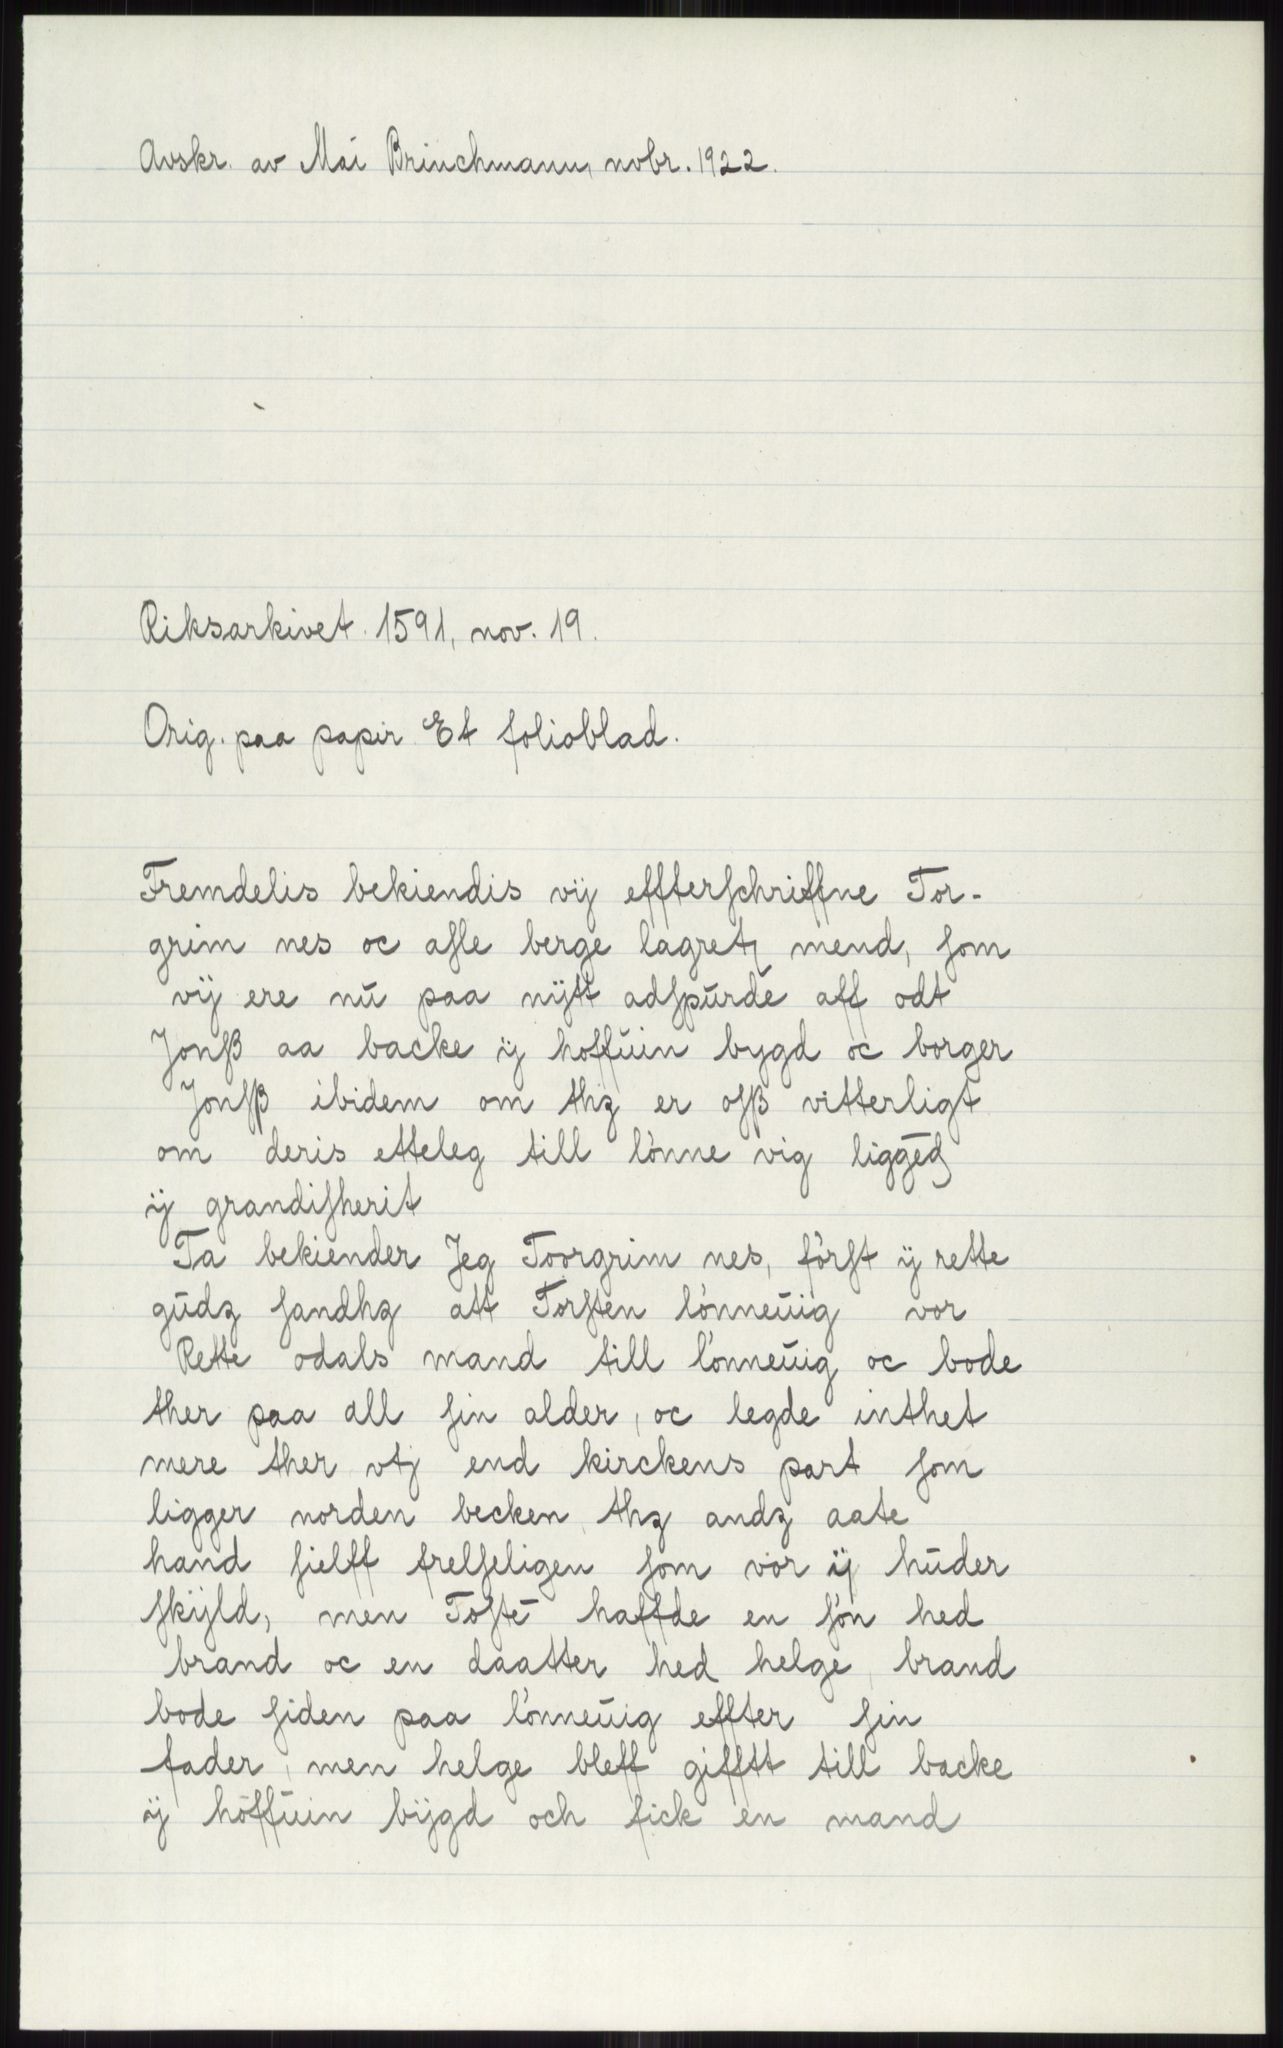 Avskr. av Mai Brinchmann, nobr. 1922.
Riksarkivet. 1591, nov. 19.
Orig. paa papir. Et folioblad.
Fremdelis bekiendis vij effterſchriffne Tor-
grim nes oc aſle berge lagretz mend, ſom
vij ere nŭ paa nÿtt adſpŭrde aff odt
Jonſß aa backe ÿ hoffŭin bygd oc borger
Jonſß ibidem om thz er oſß vitterligt
om deris etteleg till lönne vig liggēd
ÿ grandiſherit
Ta bekiender Jeg Toorgrim nes, förſt ÿ rette
gŭdz ſandhz att Torſten lönneŭig vor
Rette odals mand till lönneŭig oc bode
ther paa all ſin alder, oc legde inthet
mere ther vtj end kirckens part ſom
ligger norden becken, thz andz aate
hand ſielff frelſeligen ſom vor ÿ hŭder
ſkÿld, men Toſtē haffde en ſön hed
brand oc en daatter hed helge, brand
bode ſiden paa lönneŭig effter ſin
fader, men helge bleff gifftt till backe
ÿ höffŭin bÿgd och fick en mand